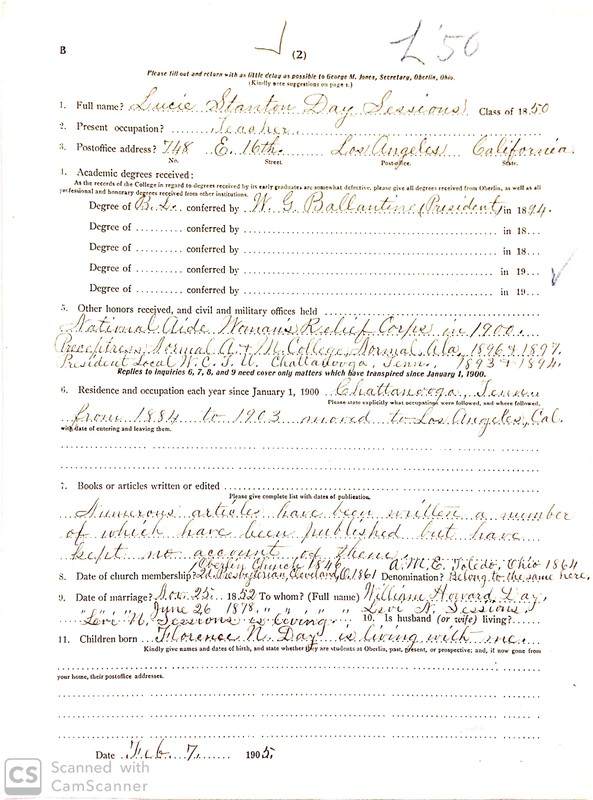 B
(2)
L '50
Please fill out and return with as little delay as possible to George M. Jones, Secretary, Oberlin, Ohio.
(Kindly note suggestions on page 1.)
1. Full name? Lucie Stanton Day Sessions Class of 1850
2. Present occupation? Teacher.
3. Postoffice address? 748 E. 16th. Los Angeles California.
No. Street. Postoffice. State.
4. Academic degrees received:
As the records of the College in regard to degrees received by its early graduates are somewhat defective, please give all degrees received from Oberlin, as well as all
professional and honorary degrees received from other institutions.
Degree of B. L. conferred by W. G. Ballantine (President) in 1894.
Degree of .......... conferred by .......... in 18...
Degree of .......... conferred by .......... in 18...
Degree of .......... conferred by .......... in 19...
Degree of .......... conferred by .......... in 19...
5. Other honors received, and civil and military offices held
National Aide Woman's Relief Corps in 1900.
Preceptress, Normal A. & M. College, Normal Ala, 1896 & 1897.
President Local W. C. T. U. Chattanooga, Tenn., 1893 & 1894.
Replies to inquiries 6, 7, 8, and 9 need cover only matters which have transpired since January 1, 1900.
6. Residence and occupation each year since January 1, 1900 Chattanooga, Tenn.
Please state explicitly what occupations were followed, and where followed,
from 1884 to 1903 moved to Los Angeles, Cal.
with date of entering and leaving them.
7. Books or articles written or edited
Please give complete list with dates of publication.
Numerous articles have been written a number
of which have been published but have
kept no account of them.
Oberlin Church 1846 A. M. E. Toledo, Ohio 1864
8. Date of church membership? 2d. Presbyterian, Cleveland, O. 1861 Denomination? Belong to the same here.
9. Date of marriage? Nov. 25. 1852 To whom? (Full name) William Howard Day,
" " " June 26 1878. " " " " " Levi N. Sessions,
Levi N. Sessions is living 10. Is husband (or wife) living?
11. Children born Florence N. Day is living with me.
Kindly give names and dates of birth, and state whether they are students at Oberlin, past, present, or prospective; and, if now gone from
your home, their postoffice addresses.
Date Feb. 7. 1905.
CS Scanned with
CamScanner